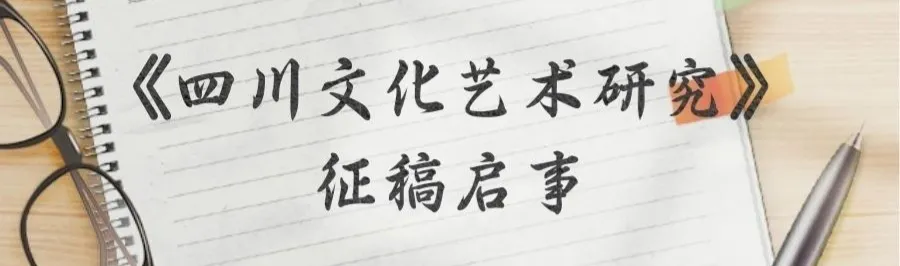 《四川文化艺术研究》
征稿启事